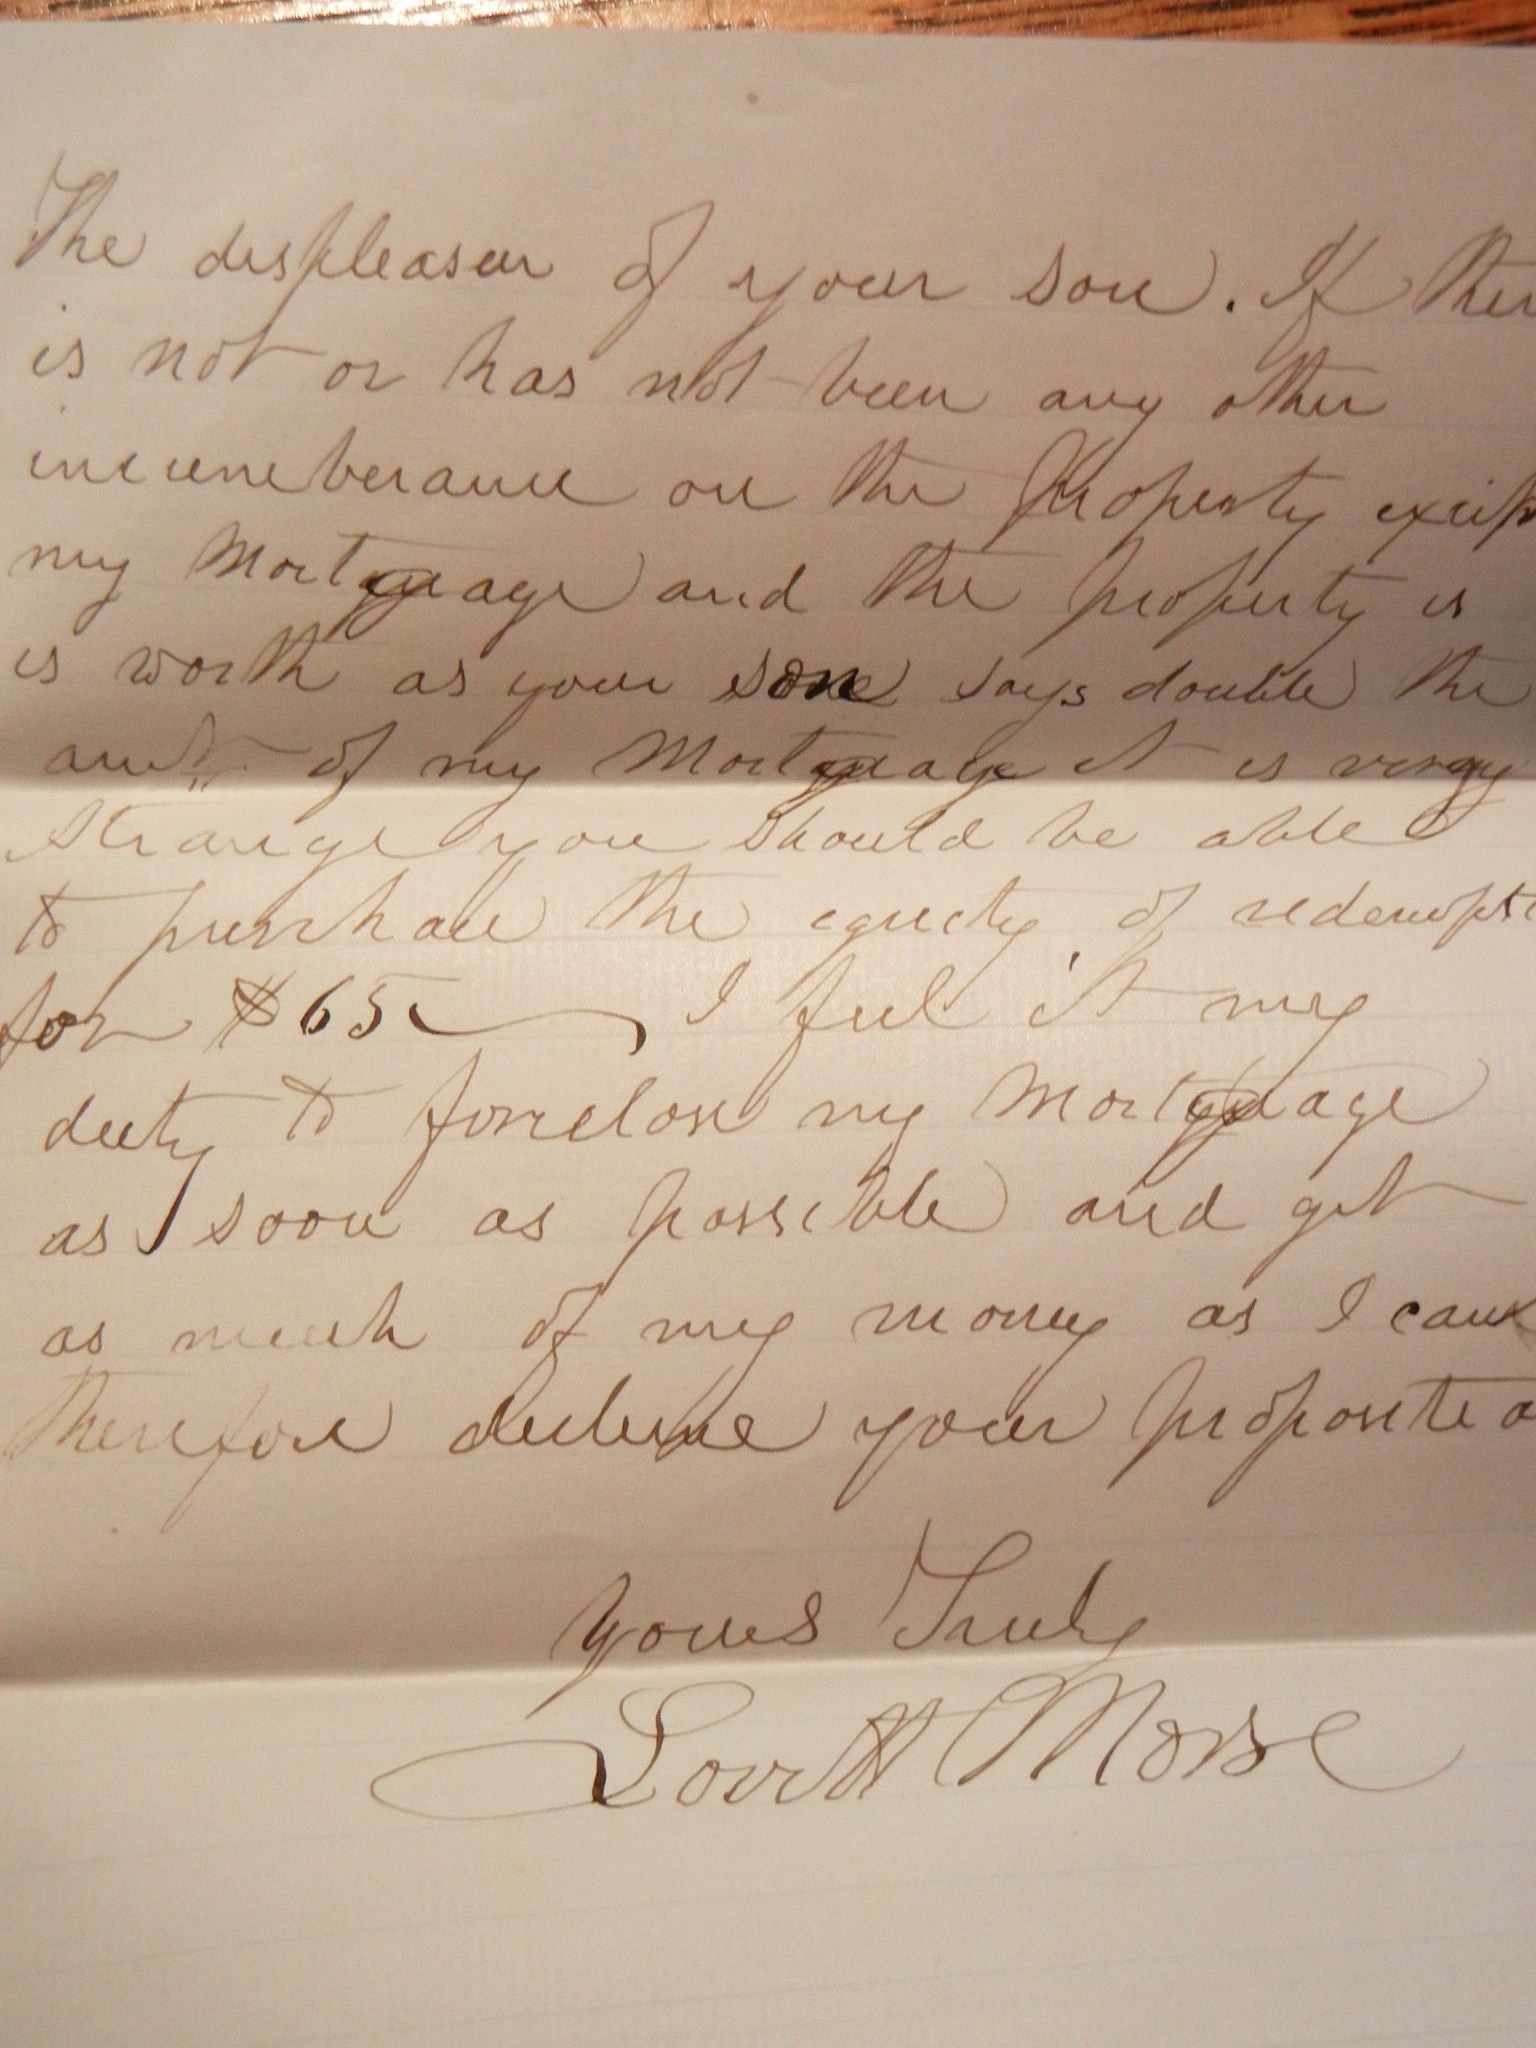 The displeasur of your son. If ther
is not or has not been any other
incumberance on the Property except
my Mortgage and the property is
is worth as your son says double the
amt of my Mortgage it is very
strange you should be able
to purchase the equity of redempti
for $65 I feel it my
duty to foreclose my Mortgage
as soon as possible and get
as much of my money as I can
therefore decline your propositio
Yours Truly
Lovett Morse